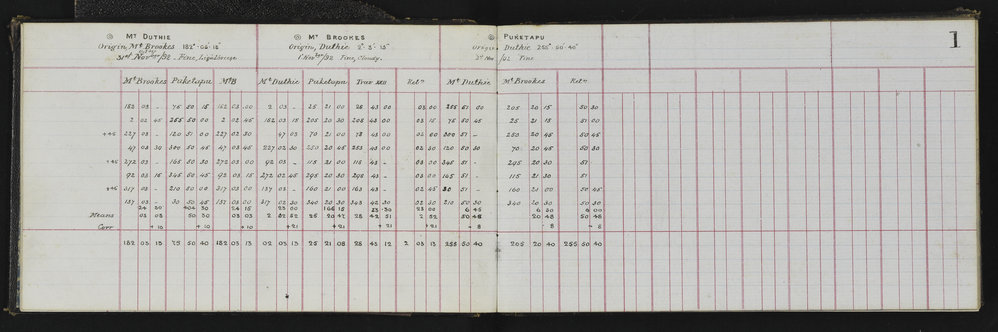 1
⊙ Mt DUTHIE ⊙ Mt BROOKES ⊙ PUKETAPU
Origin, Mt Brookes 182° 06' 15" Origin, Duthie 2° 3' 13" Origin Duthie 255° 50' 40"
31st /92 - Fine, Light breeze 1st Novber/92 Fine, Cloudy. Nov /92 Fine
Mt Brookes Puketapu Mt B Mt Duthie Puketapu Trav XXII Retn Mt Duthie Mt Brookes Retn
182 03 - 75 50 15 182 03 00 2 03 - 25 21 00 28 43 00 03 00 255 51 00 205 20 15 50 30
2 02 45 255 50 00 2 02 45 182 03 15 205 20 30 208 43 00 03 15 75 50 45 25 21 15 51 00
+45 227 03 - 120 51 00 227 02 30 47 03 70 21 00 73 43 00 02 60 300 51 - 250 20 45 50 45
47 03 30 300 50 45 47 03 45 227 02 30 250 20 45 253 43 00 02 30 120 50 30 70 20 45 50 30
+45 272 03 - 165 50 30 272 03 00 92 03 - 115 21 00 118 43 - 03 00 345 51 - 295 20 30 51
92 03 15 345 50 45 92 03 15 272 02 45 295 20 30 298 43 - 03 00 165 51 - 115 21 30 51
+45 317 03 - 210 50 00 317 03 00 137 03 - 160 21 00 163 43 - 02 45 30 51 - 160 21 00 50 45
137 03 - 30 50 45 137 03 00 317 02 30 340 20 30 343 42 30 02 30 210 50 30 340 20 30 50 30
24 30 404 30 24 15 23 00 166 15 23 30 23 00 6 45 6 30 6 00
Means 03 03 50 30 03 03 2 02 52 25 20 47 28 42 51 2 52 50 48 20 48 50 48
Corr + 10 + 10 + 10 +21 +21 + 21 +21 - 8 - 8 - 8
182 03 13 75 50 40 182 03 13 02 03 13 25 21 08 28 43 12 2 03 13 255 50 40 205 20 40 255 50 40